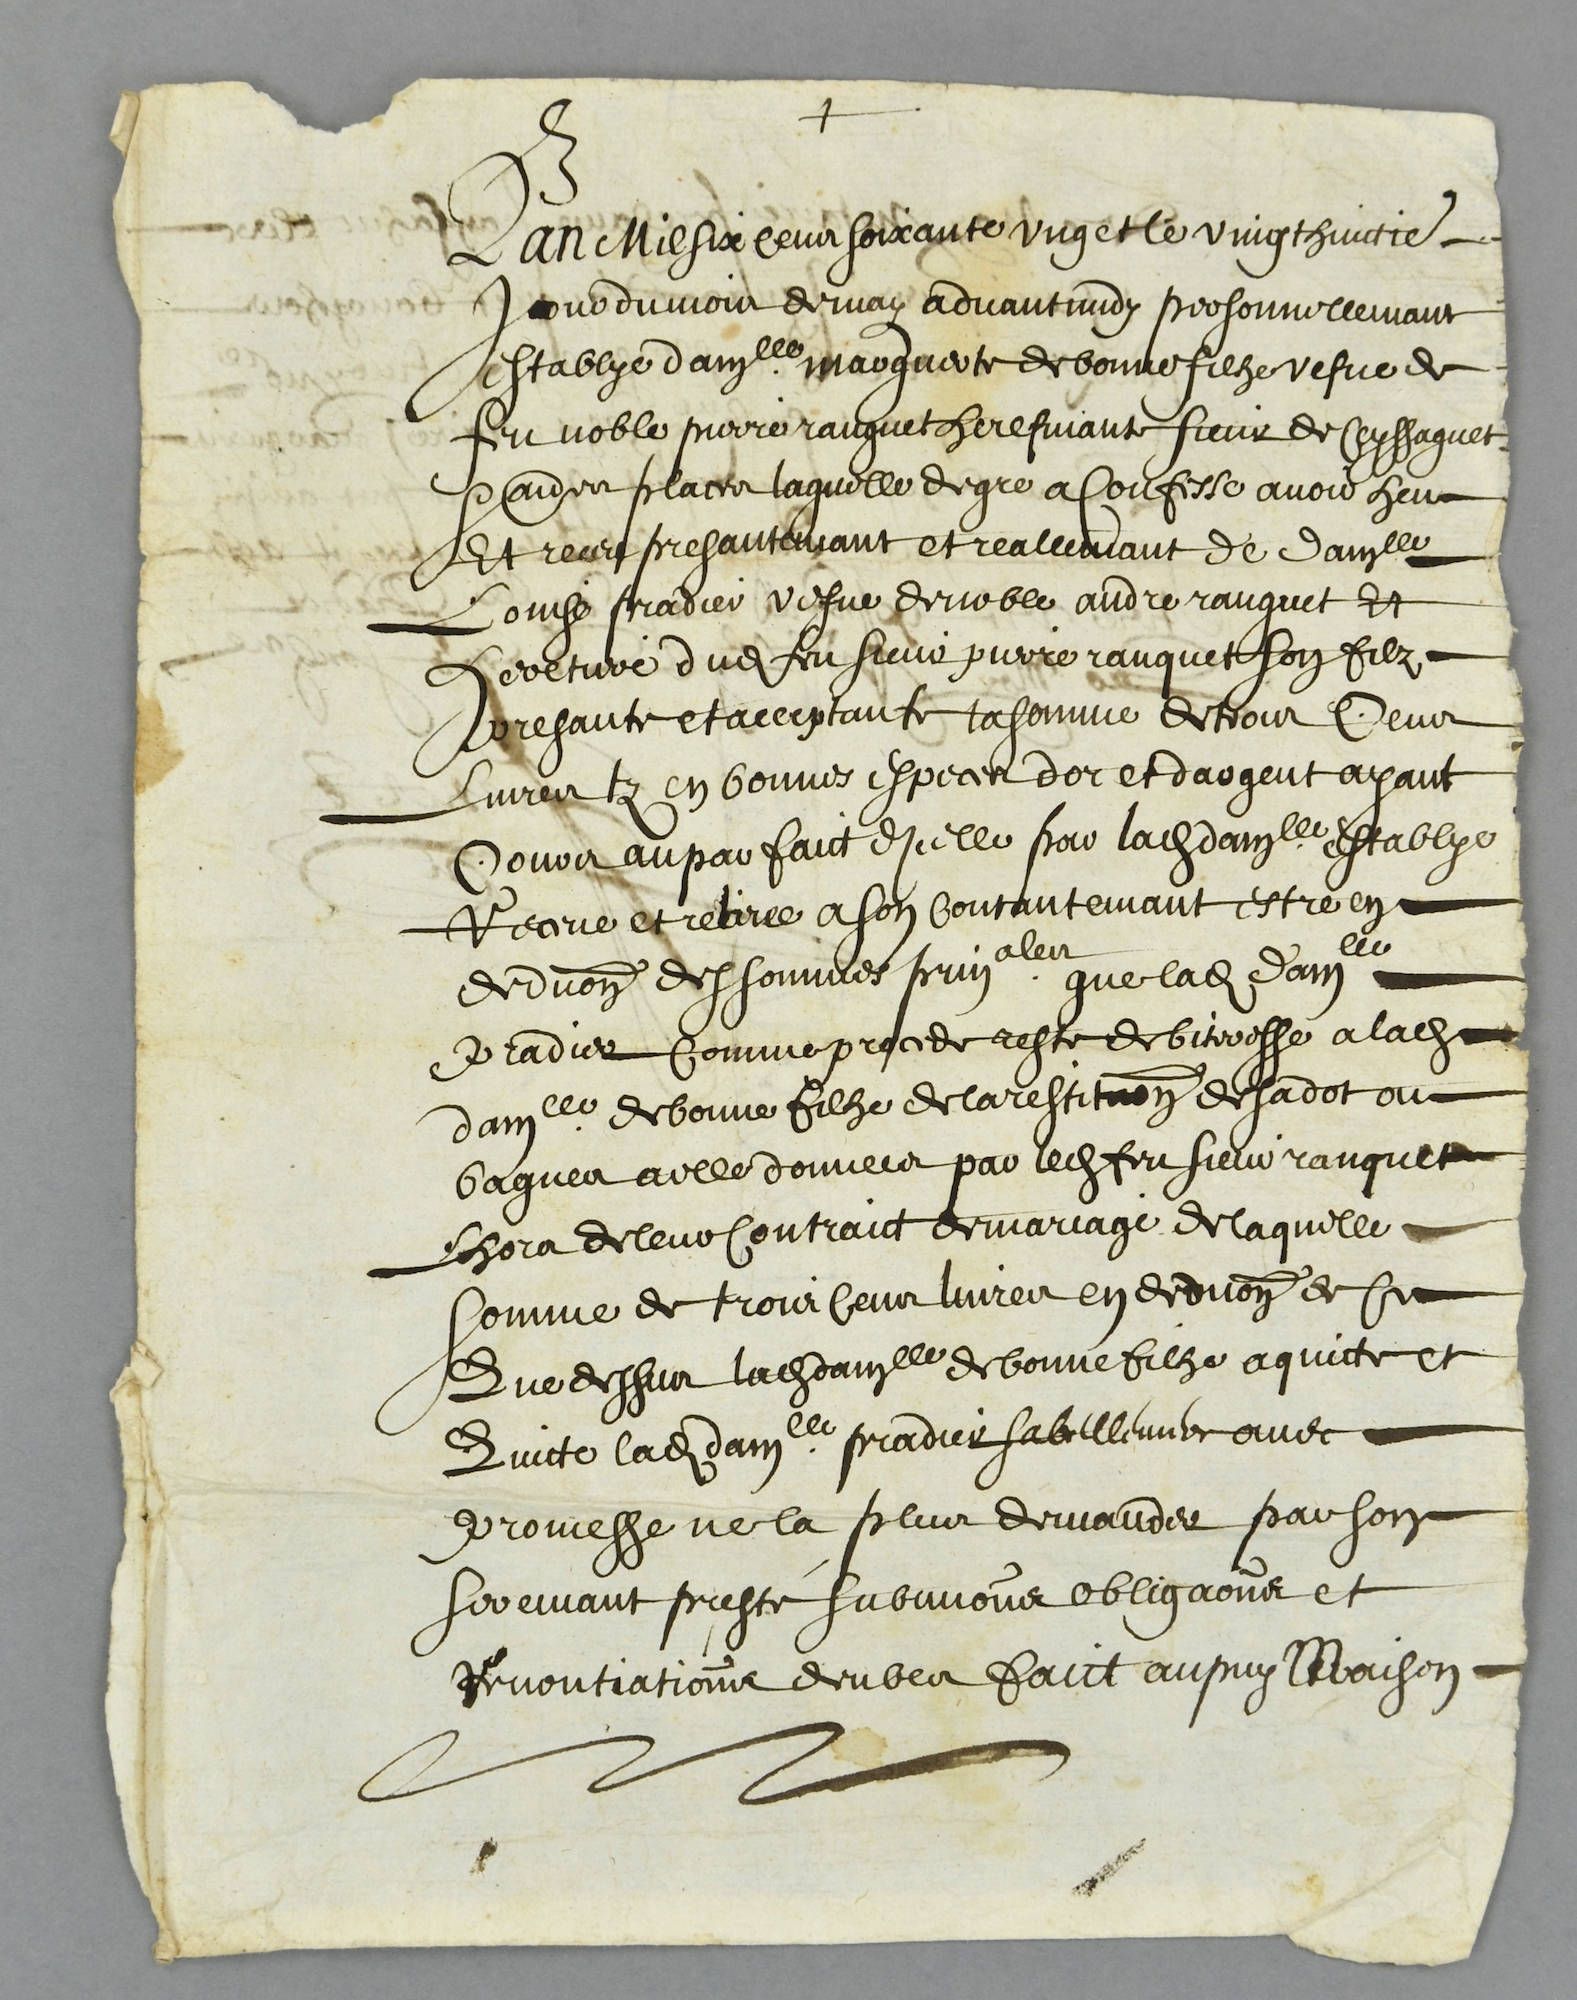 Lan Mil six cens soixante ung et le vingt huictie
Jour du mois de may advant midy personnellemant
establye dam.lle margueritte de bonnefilhe vefve de
feu noble pierre ranquet sieur de Ceyssaguet
places laquelle de gre a Confesse avoir heu
Et receu presantemant et reallemant de Dam.lle
Louise pradier vefve de noble andre ranquet Et
heretiere dud feu sieur pierre ranquet son filz
presante et acceptante la somme de trois Cens
Livres tz en bonnes especes dor et dargent ayant
Cours au par faict dicelle par lad dam.lle establye
Receue et retiree a son Contantemant estre en
deduon des sommes prin.ales que lad Dam.lle
Pradier Comme procede reste debitresse a lad
dam.lle de bonnefilhe de la restituon de sa dot ou
bagues a elle donnees par led feu sieur ranquet
Lhors de leur Contraict de mariage de laquelle
Somme de trois Cens livres en deduon de Ce
Que dessus lad dam.lle de bonnefilhe a quicte et
Quicte lad dam.lle pradier avec
Promesse ne la plus demander par son
Seremant presté submions obligaons et
Renontiations deubes faict au puy Maison